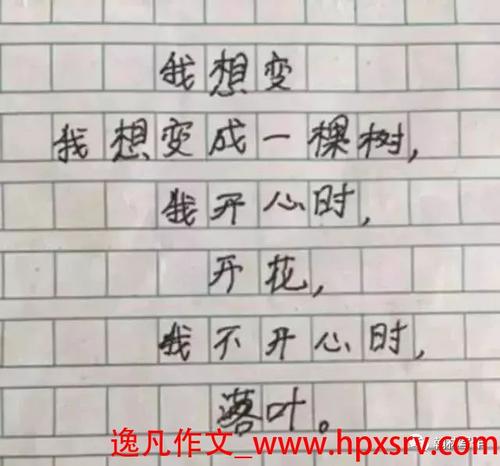 我想变
我想变成一棵树，
我开心时，
开花，
我不开心时，
落叶。
逸凡作文_www.hpxsrv.com